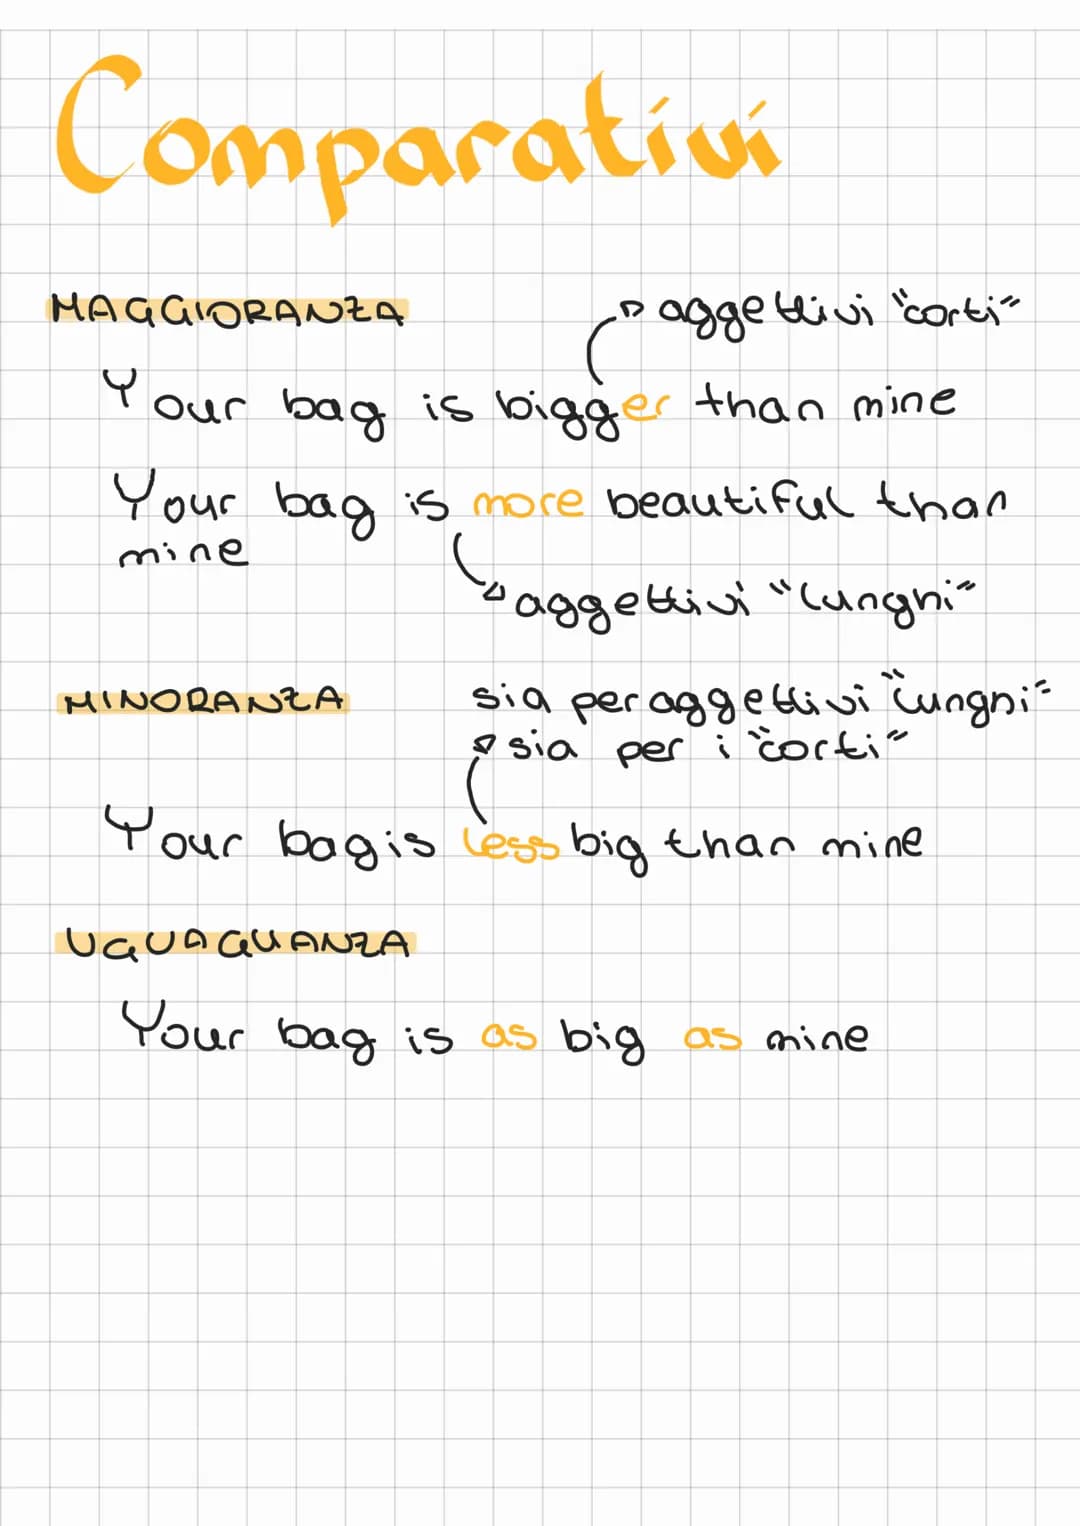 Comparativi
MAGGIORANZA
aggettivi "corti"
Your bag is bigger than mine
Your bag is more beautiful than
mine
aggettivi "lunghi"
MINORANZA
sia per aggettivi "lunghi"
sia per i "corti"
Your bag is less big than mine
UGUAGUANZA
Your bag is as big as mine